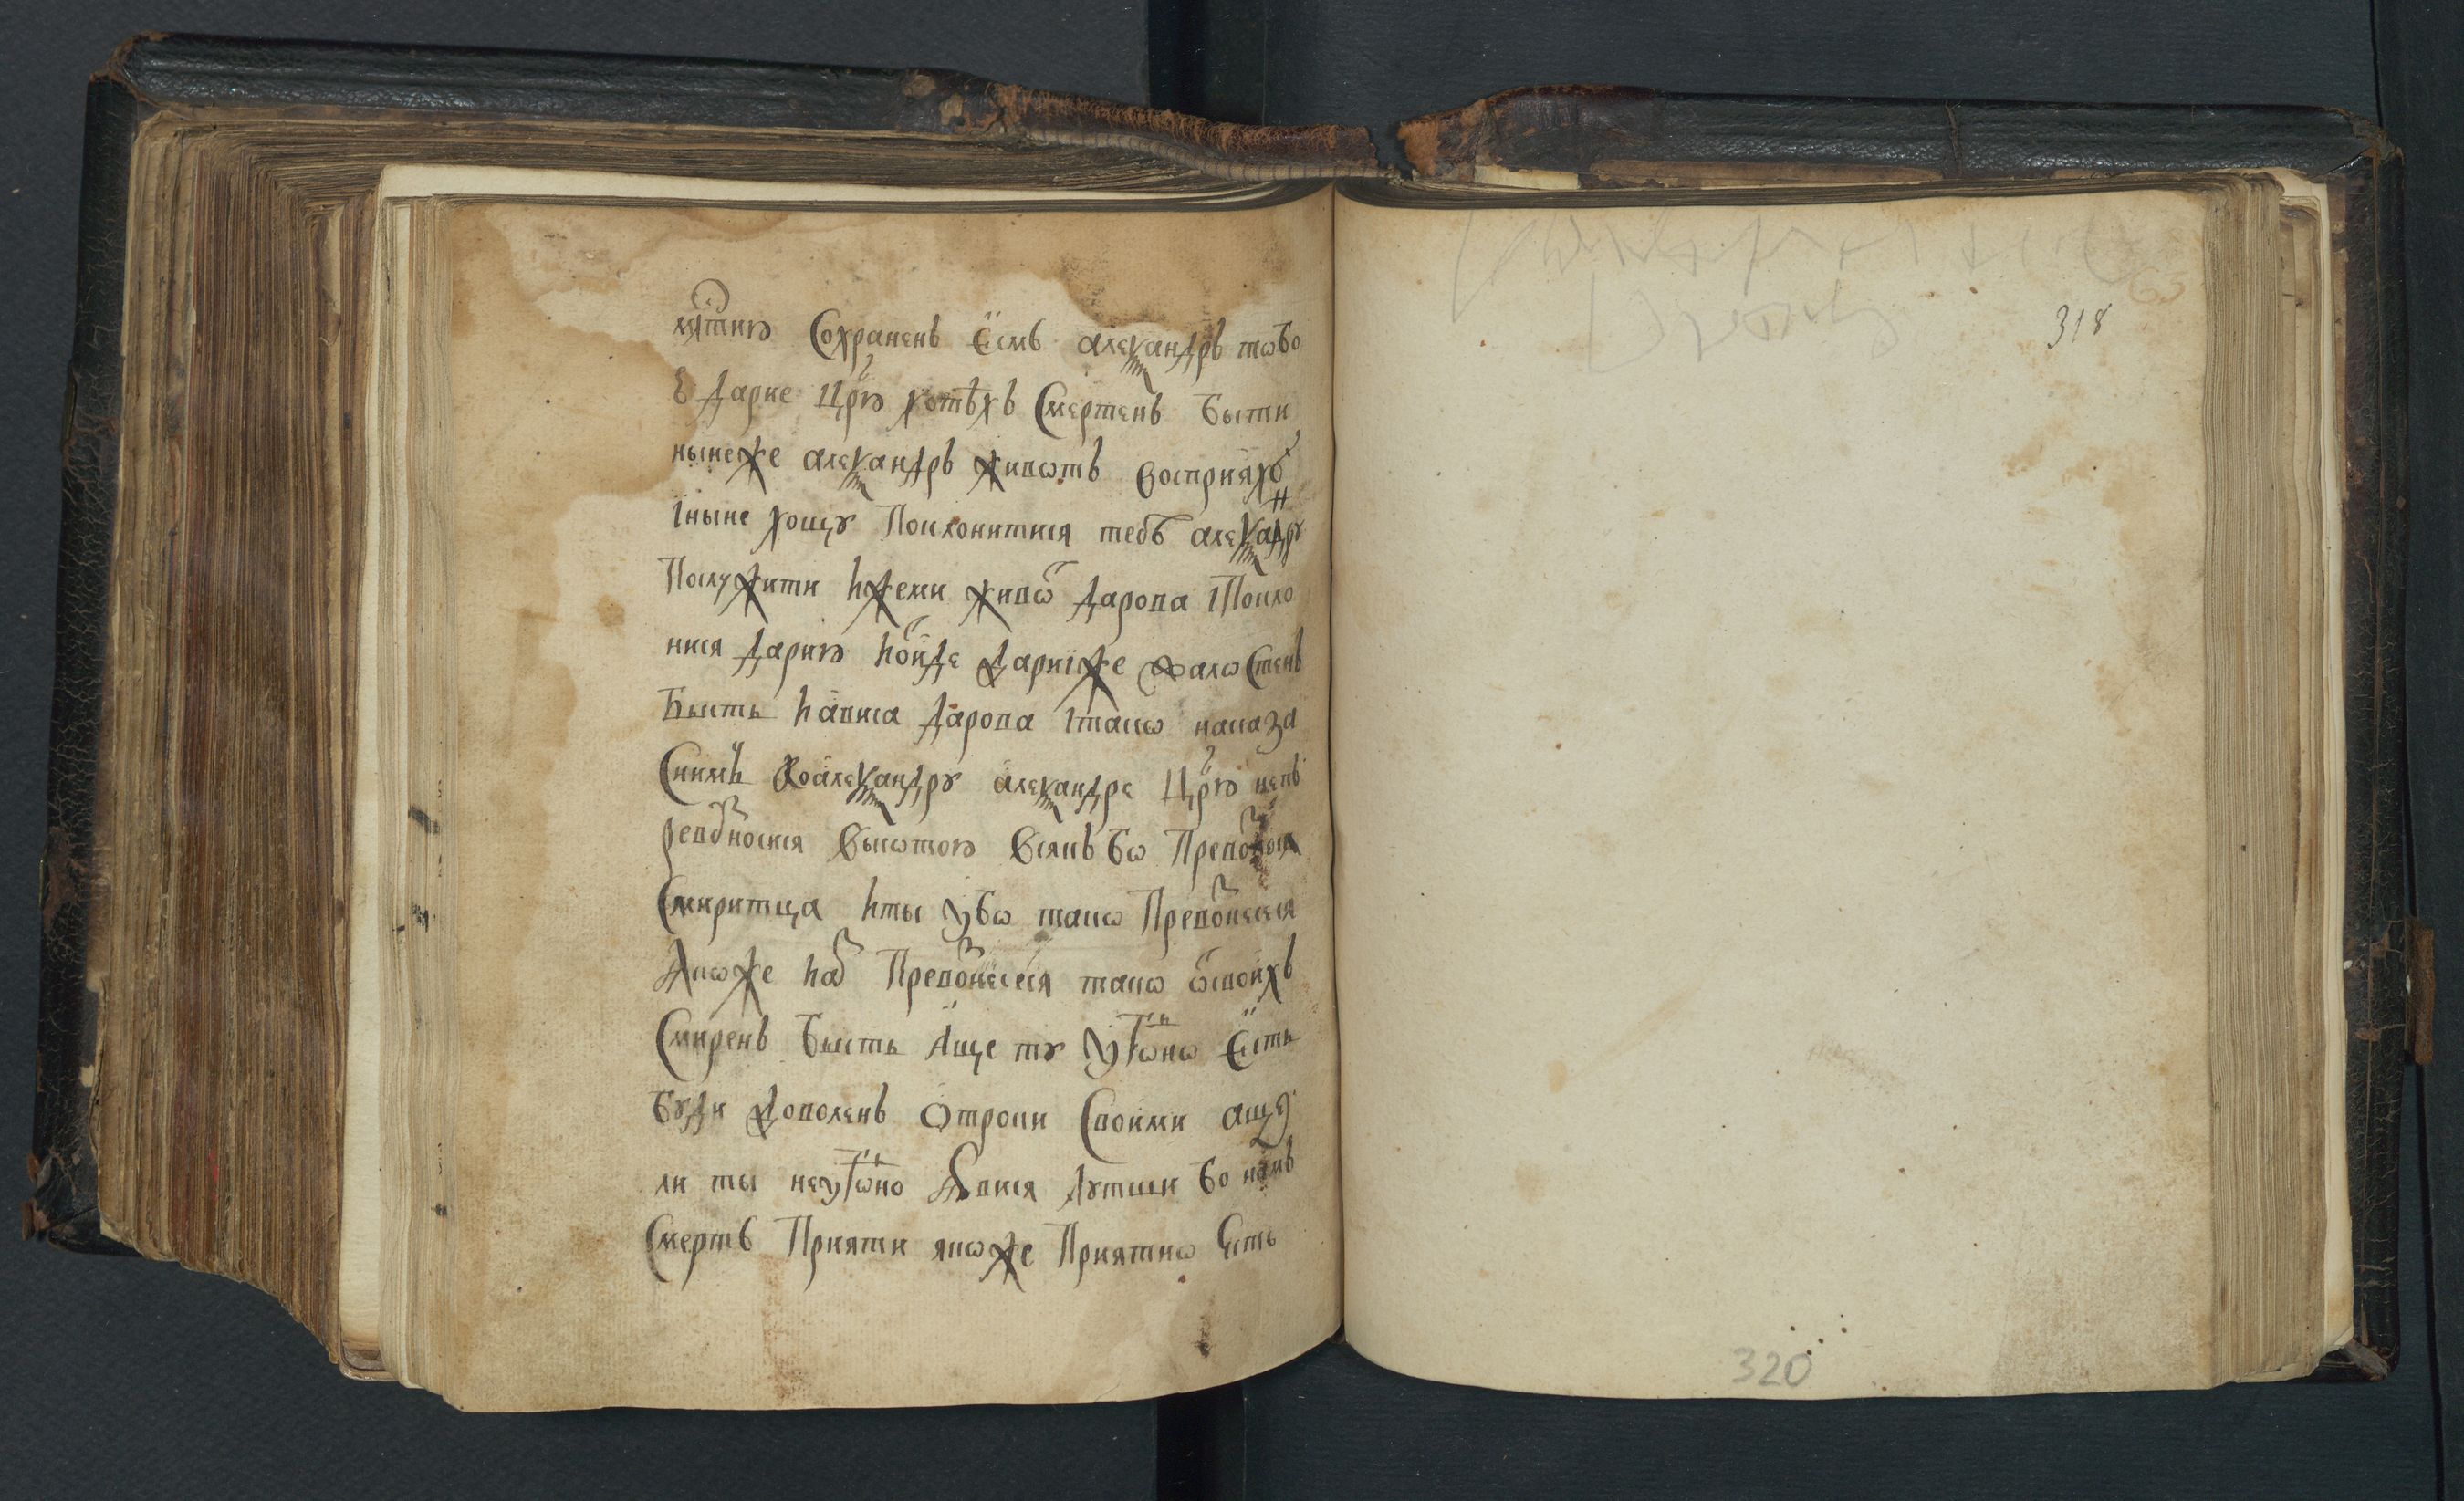 мл҃стию Сохраненъ Есмь алеѯандръ тобо
в дарие Цр҃ю хотѣхъ Смертенъ быти
нынеже алеѯандръ животъ восприяхъ
Іныне хощу Поклонитися тебѣ алеѯанⷣру
Послужити Ижеми живоⷮ дарова ІПокло
нися дарию Иоиде дариїже жалоСтенъ
бысть Иависа дарова ітако наказа
Снимъ Коалеѯандру алеѯандре Црⷭ҇ю непъ
ревоⷥносися высотою всякъ бо
Смиритца Иты Убо тако Превоⷥнесеся
Якоже Превоⷥнесеся тако ѿсвоихъ
Смиренъ бысть Аще ту Угоⷣно Есть
буди доволенъ Отроки Своими аще
ли ты неугоⷣно Явися лутши бо намъ
Смерть Прияти якоже Приятно Есть
318
320